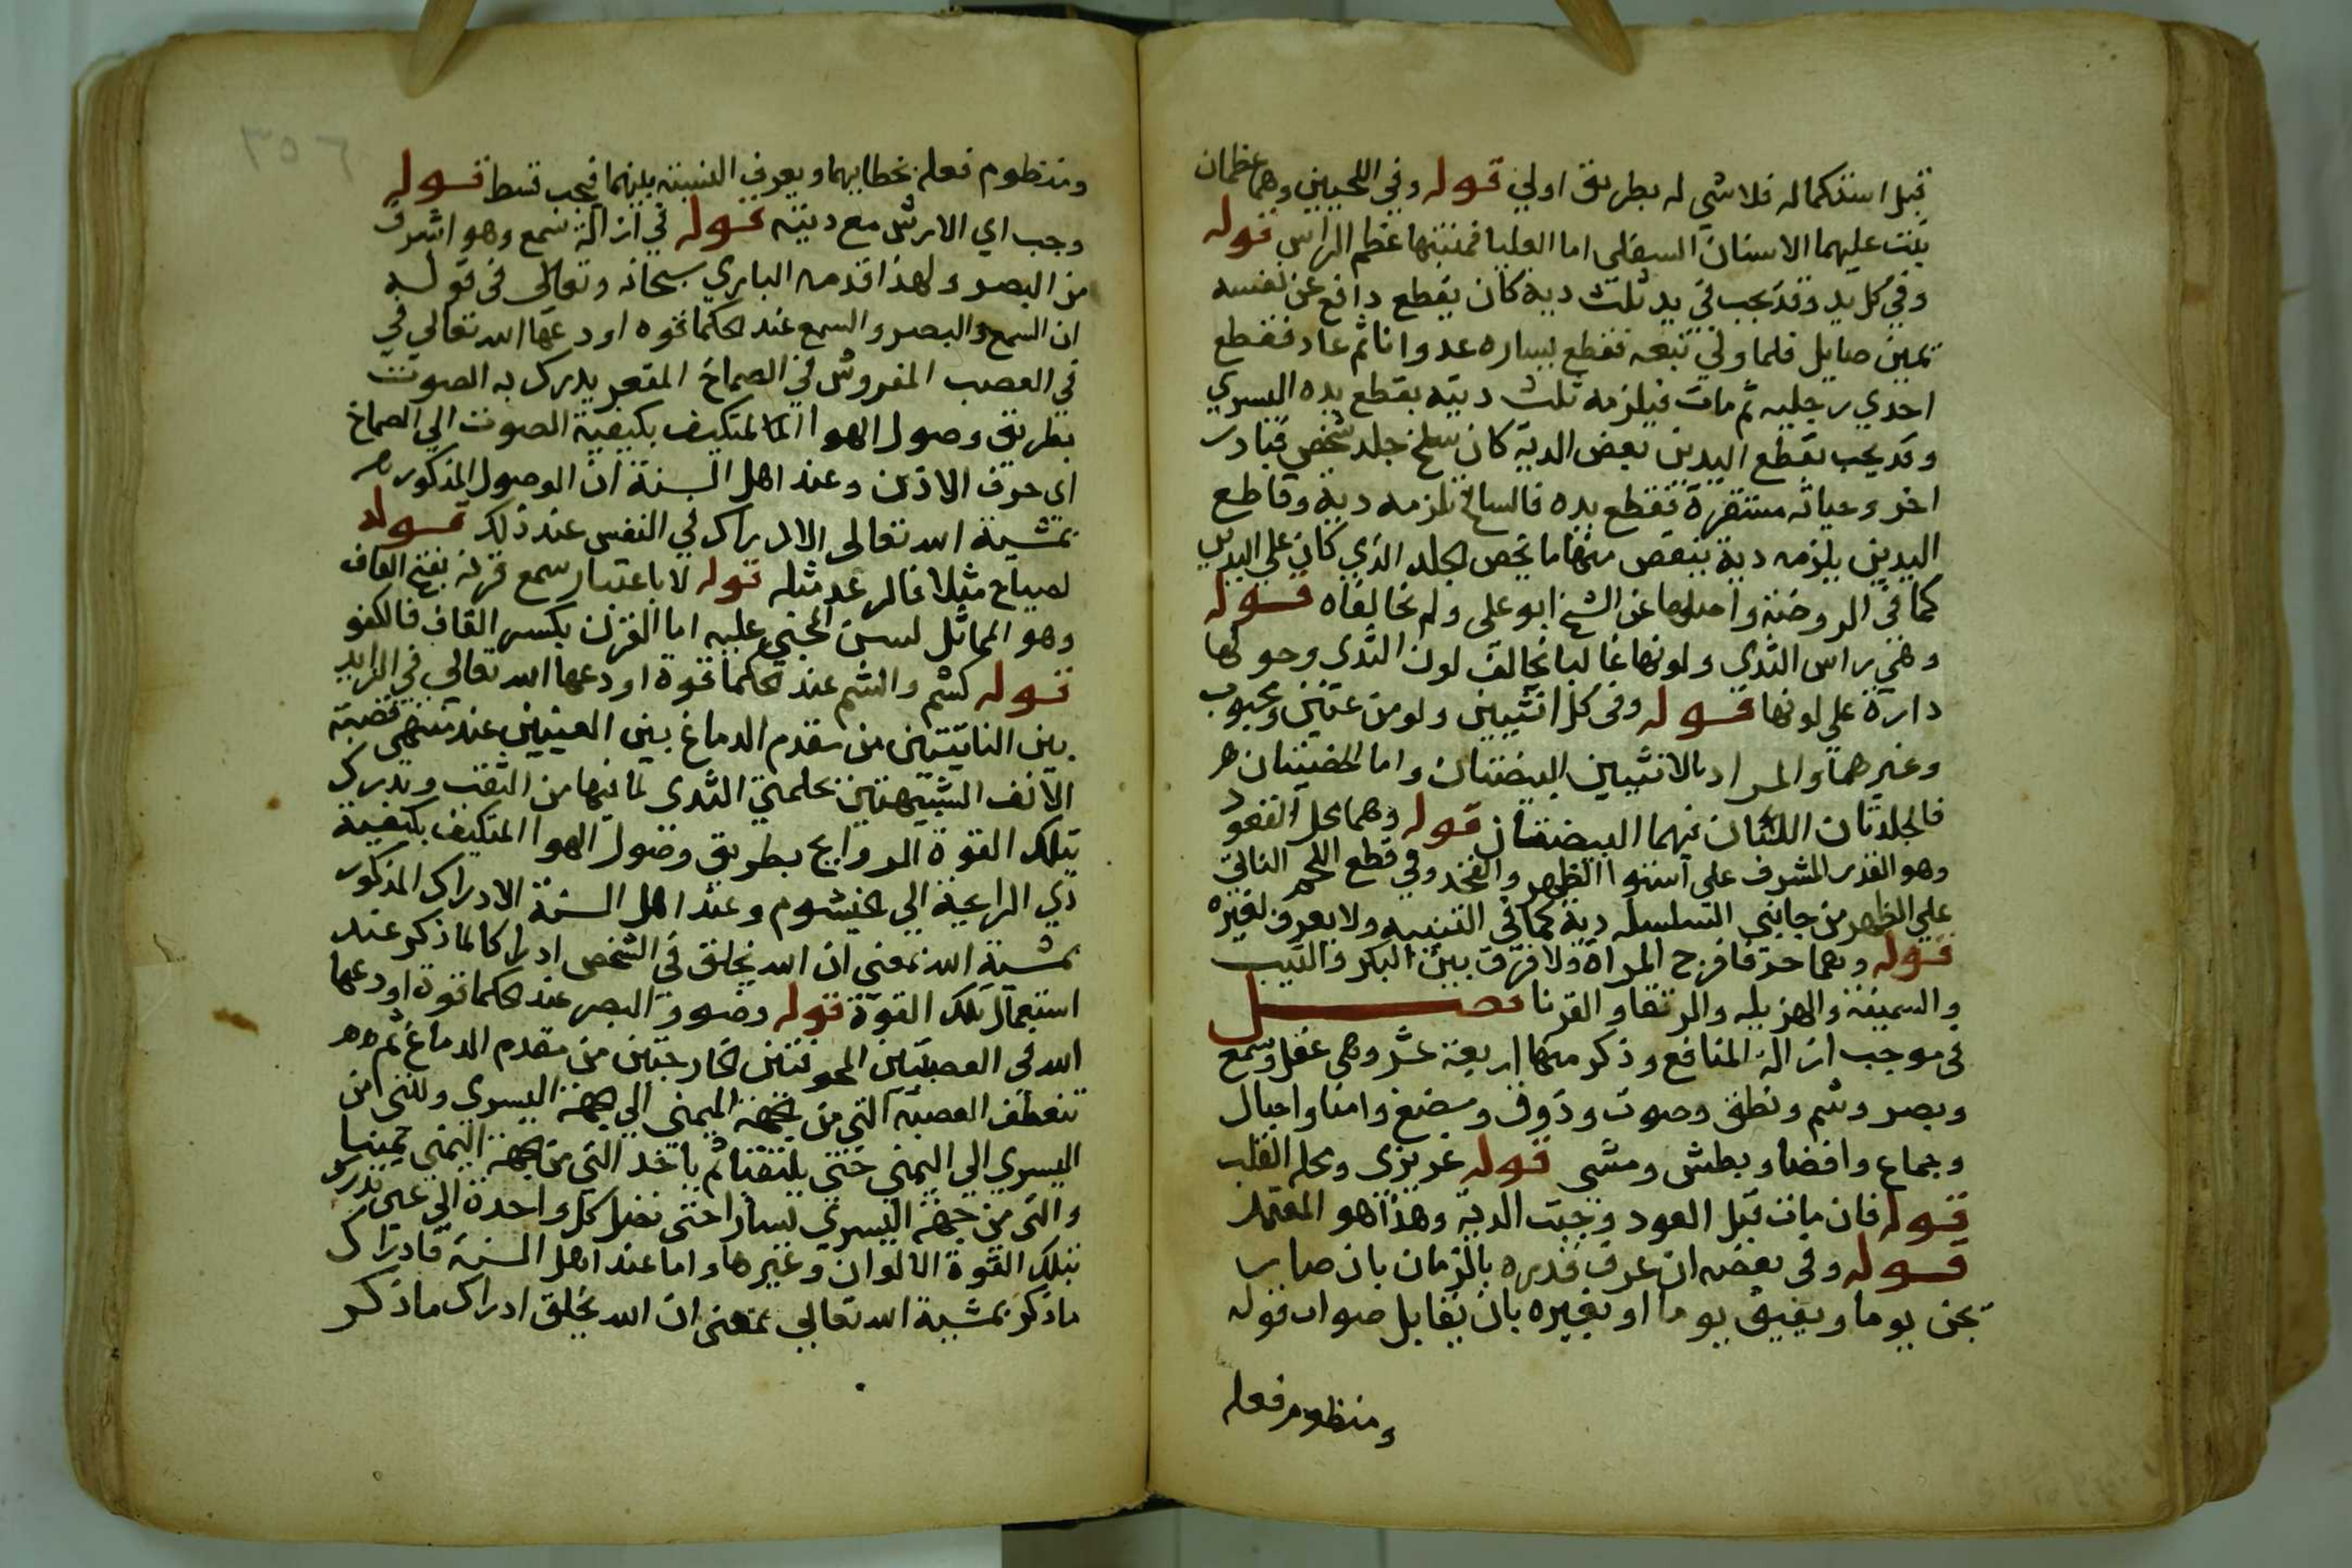 قبل استكماله فلا شي له بطريق اولي قوله وفي اللحيين وهما عظمان
تنبت عليهما الاسنان السفلي اما العليا فمنبتها عظم الراس قوله
وفي كل يد وقد يجب في يد ثلث دية كان يقطع دافع عن نفسه
يمين صايل فلما ولي تبعه فقطع يساره عدوانا ثم عاد فقطع
احدي رجليه ثم مات فيلزمه ثلث دية بقطع يده اليسري
وقد يجب بقطع اليدين بعض الدية كان سلخ جلد شخص فبادر
اخر وحياته مستقرة فقطع يده فالسالخ تلزمه دية وقاطع
اليدين يلزمه دية ينقص منها ما يخص الجلد الذي كان علي اليدين
كما في الروضة واصلها عن الشيخ ابو على ولم يخالفاه قوله
وهي راس الثدي ولونها غالبا يخالف لون الثدي وحولها
دارة علي لونها قوله وفي كل انثيين ولو من عنين ومجبوب
وغيرهما والمراد بالانثيين البيضتان واما الخصيتان
فالجلدتان اللتان فيهما البيضتان قوله وهما محل القعود
وهو القدر المشرف علي استوا الظهر والفخذ وفي قطع اللحم الناتي
علي الظهر من جانبي السلسلة دية كما في التنبيه ولا يعرف لغيره
قوله وهما حرفا فرج المراة ولا فرق بين البكر والثيب
والسمينة والهزيلة والرتقا والقرنا فصل
في موجب ازالة المنافع وذكر منها اربعة عشر وهي عقل وسمع
وبصر وشم ونطق وصوت وذوق ومضغ وامنا واحبال
وجماع وافضا وبطش ومشي قوله غريزي ومحله القلب
قوله فان مات قبل العود وجبت الدية وهذا هو المعتمد
قوله وفي بعضه ان عرف قدره بالزمان بان صار
يجن يوما ويفيق يوما او بغيره بان يقابل صواب قوله
ومنظوم فعله
ومنظوم فعله بخطابهما ويعرف النسبة بينهما فيجب قسط قوله
وجب اي الارش مع ديته قوله في ازالة سمع وهو اشرف
من البصر ولهذا قدمه الباري سبحانه وتعالى في قوله
ان السمع والبصر والسمع عند الحكما قوه اودعها الله تعالي في
في العصب المفروش في الصماخ المقعر يدرك به الصوت
بطريق وصول الهوا المتكيف بكيفية الصوت الي الصماخ
اي خرق الاذن وعند اهل السنة ان الوصول المذكور
بمشية الله تعالى الادراك في النفس عند ذلك قوله
لصياح مثلا فالرعد مثله قوله لا باعتبار سمع قرنه بفتح القاف
وهو المماثل لسن المجني عليه اما القرن بكسر القاف فالكفو
قوله كشم والشم عند الحكما قوة اودعها الله تعالي في الزايد
بين الناتيتين من مقدم الدماغ بين العينين عند منتهي قصبة
الانف الشبيهتين بحلمتي الثدى لما فيها من الثقب ويدرك
بتلك القوة الروايح بطريق وصول الهوا المتكيف بكيفية
ذي الرايحة الي الخيشوم وعند اهل السنة الادراك المذكور
بمشية الله بمعني ان الله يخلق في الشخص ادراكا لما ذكر عند
استعمال تلك القوة قوله وضوو البصر عند الحكما قوة اودعها
الله في العصبتين المجوفتين الخارجتين من مقدم الدماغ ثم
تنعطف العصبة التي من الجهة اليمني الي الجهة اليسري والتي من
اليسري الي اليمني حتي يلتقتا ثم ياخذ التي من الجهة اليمني يمينا
والتي من جهة اليسري يسارا حتى تصل كل واحدة الي عين تدرك
بتلك القوة الالوان وغيرها واما عند اهل السنة فادراك
ما ذكر بمشية الله تعالي بمعني ان الله يخلق ادراك ما ذكر